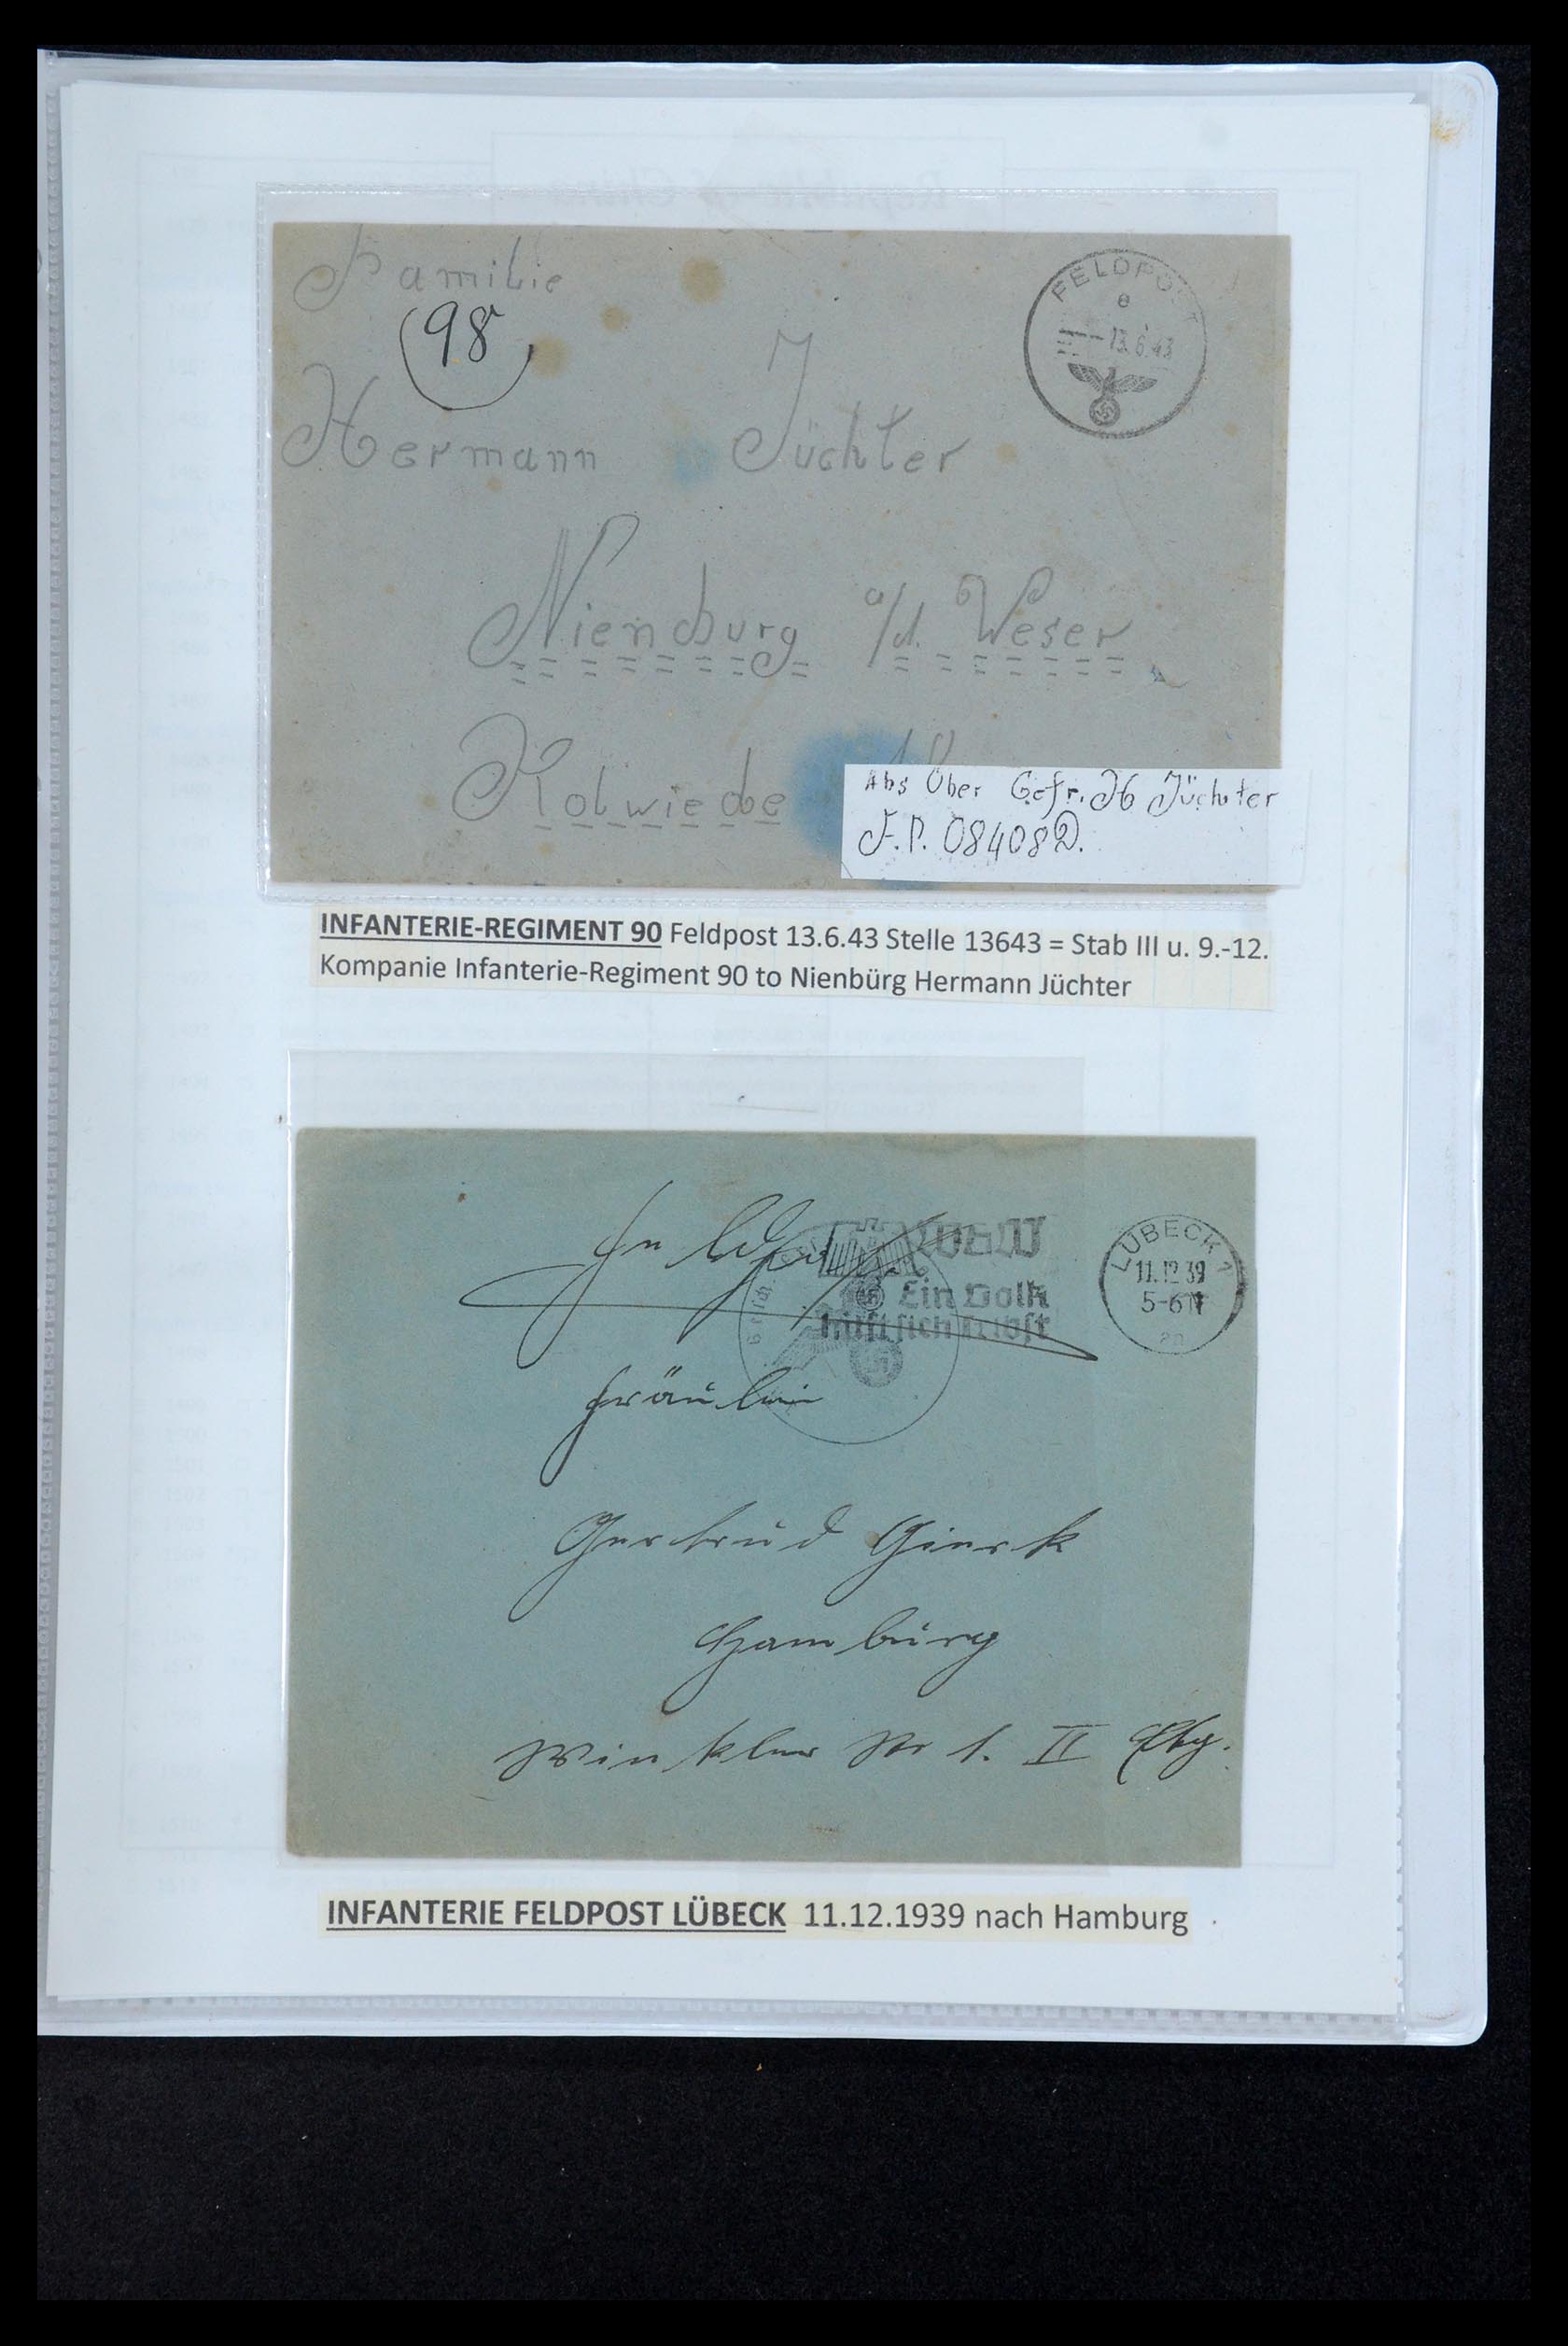 Familie
98
Hermann Jüchter
FELDPOST
e
13.6.43
Nienburg a/d. Weser
Kolwiede
Abs Über Gefr. H Jüchter
F.P. 08408D.
INFANTERIE-REGIMENT 90 Feldpost 13.6.43 Stelle 13643 = Stab III u. 9.-12.
Kompanie Infanterie-Regiment 90 to Nienbürg Hermann Jüchter
Feldpost
WHW
Ein Volk
hilft sich selbst
LÜBECK 1
11.12.39
5-6 N
Fräulein
Gertrud Gierk
Hamburg
Winkler Str 1. II Etg.
INFANTERIE FELDPOST LÜBECK 11.12.1939 nach Hamburg